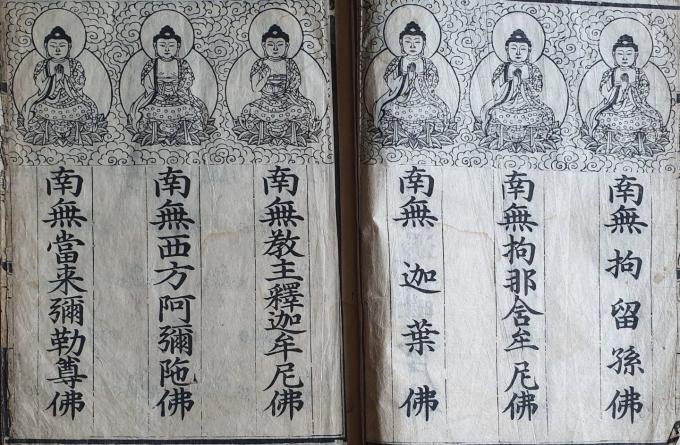 南無拘留孫佛
南無拘那舍牟尼佛
南無迦葉佛
南無教主釋迦牟尼佛
南無西方阿彌陁佛
南無當来彌勒尊佛